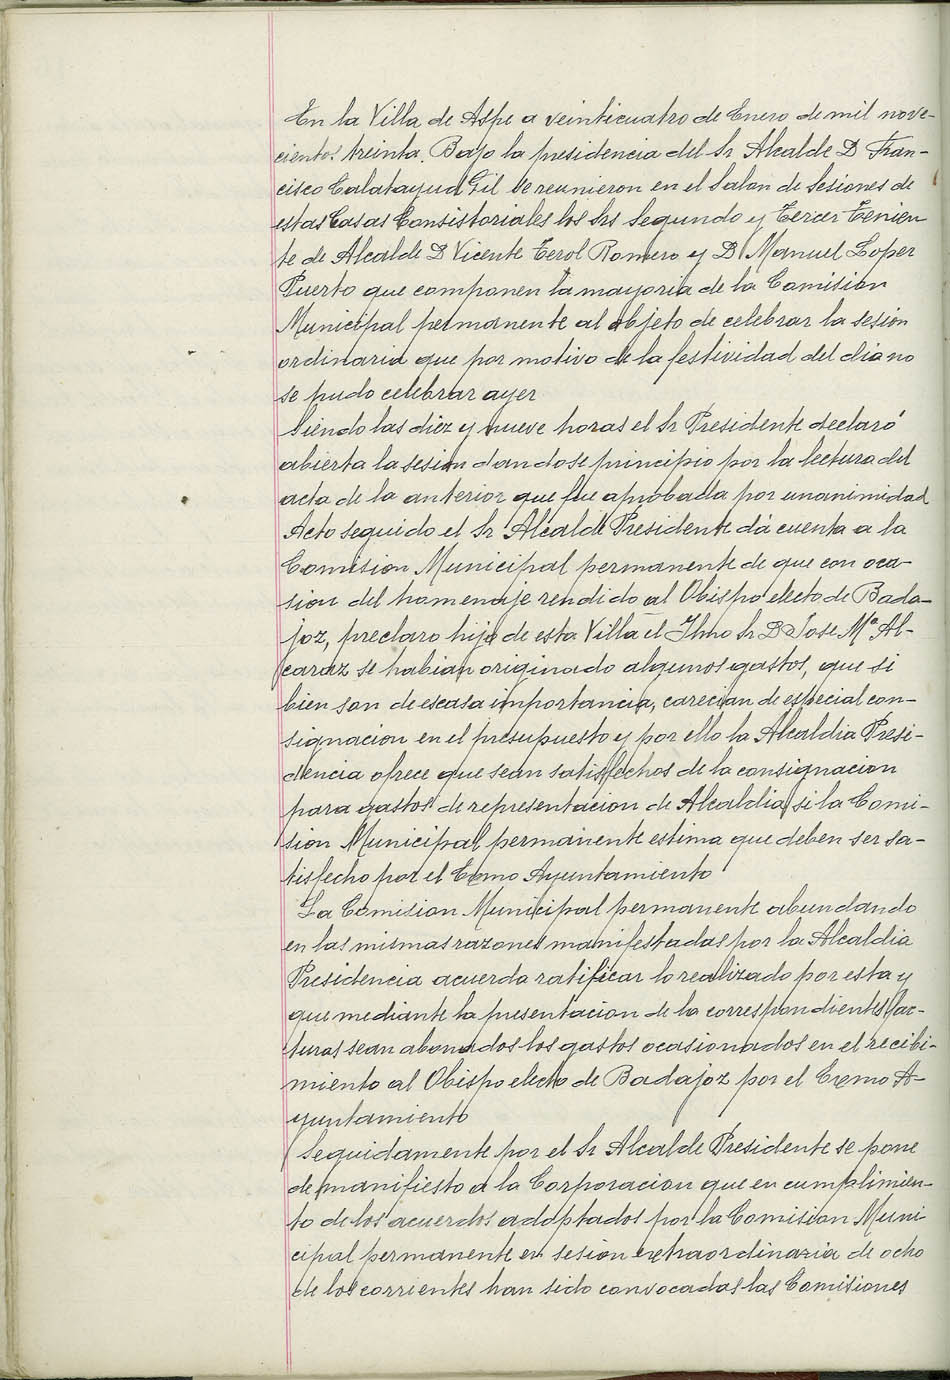 En la Villa de Aspe a veinticuatro de Enero de mil nove-
cientos treinta. Bajo la presidencia del Sr Alcalde D Fran-
cisco Calatayud Gil se reunieron en el Salon de Sesiones de
estas Casas Consistoriales los Srs Segundo y Tercer Tenien
te de Alcalde D Vicente Terol Romero y D Manuel Lopez
Puerto que componen la mayoria de la Comision
Municipal permanente al objeto de celebrar la sesión
ordinaria que por motivo de la festividad del dia no
se pudo celebrar ayer
Siendo las diez y nueve horas el Sr Presidente declaró
abierta la sesion dandose principio por la lectura del
acta de la anterior que fue aprobada por unanimidad
Acto seguido el Sr Alcalde Presidente dá cuenta a la
Comision Municipal permanente de que con oca-
sion del homenaje rendido al Obispo electo de Bada-
joz, preclaro hijo de esta Villa el Ilmo Sr D Jose Mª Al-
caraz se habian originado algunos gastos, que si
bien son de escasa importancia, carecian de especial con-
signacion en el presupuesto y por ello la Alcaldia Presi-
dencia ofrece que sean satisfechos de la consignacion
para gastos de representacion de Alcaldia si la Comi-
sion Municipal permanente estima que deben ser sa-
tisfecho por el Exmo Ayuntamiento
La Comision Municipal permanente abundando
en las mismas razones manifestadas por la Alcaldia
Presidencia acuerda ratificar lo realizado por esta y
que mediante la presentacion de la correspondientes fac-
turas sean abonados los gastos ocasionados en el recibi-
miento al Obispo electo de Badajoz por el Exmo A-
yuntamiento
Seguidamente por el Sr Alcalde Presidente se pone
de manifiesto a la Corporacion que en cumplimien-
to de los acuerdos adoptados por la Comision Muni
cipal permanente en sesion extraordinaria de ocho
de los corrientes han sido convocadas las Comisiones